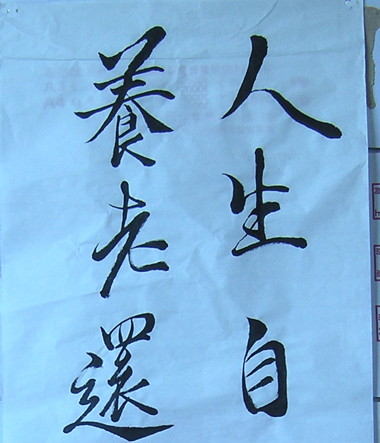 人生自
養老還